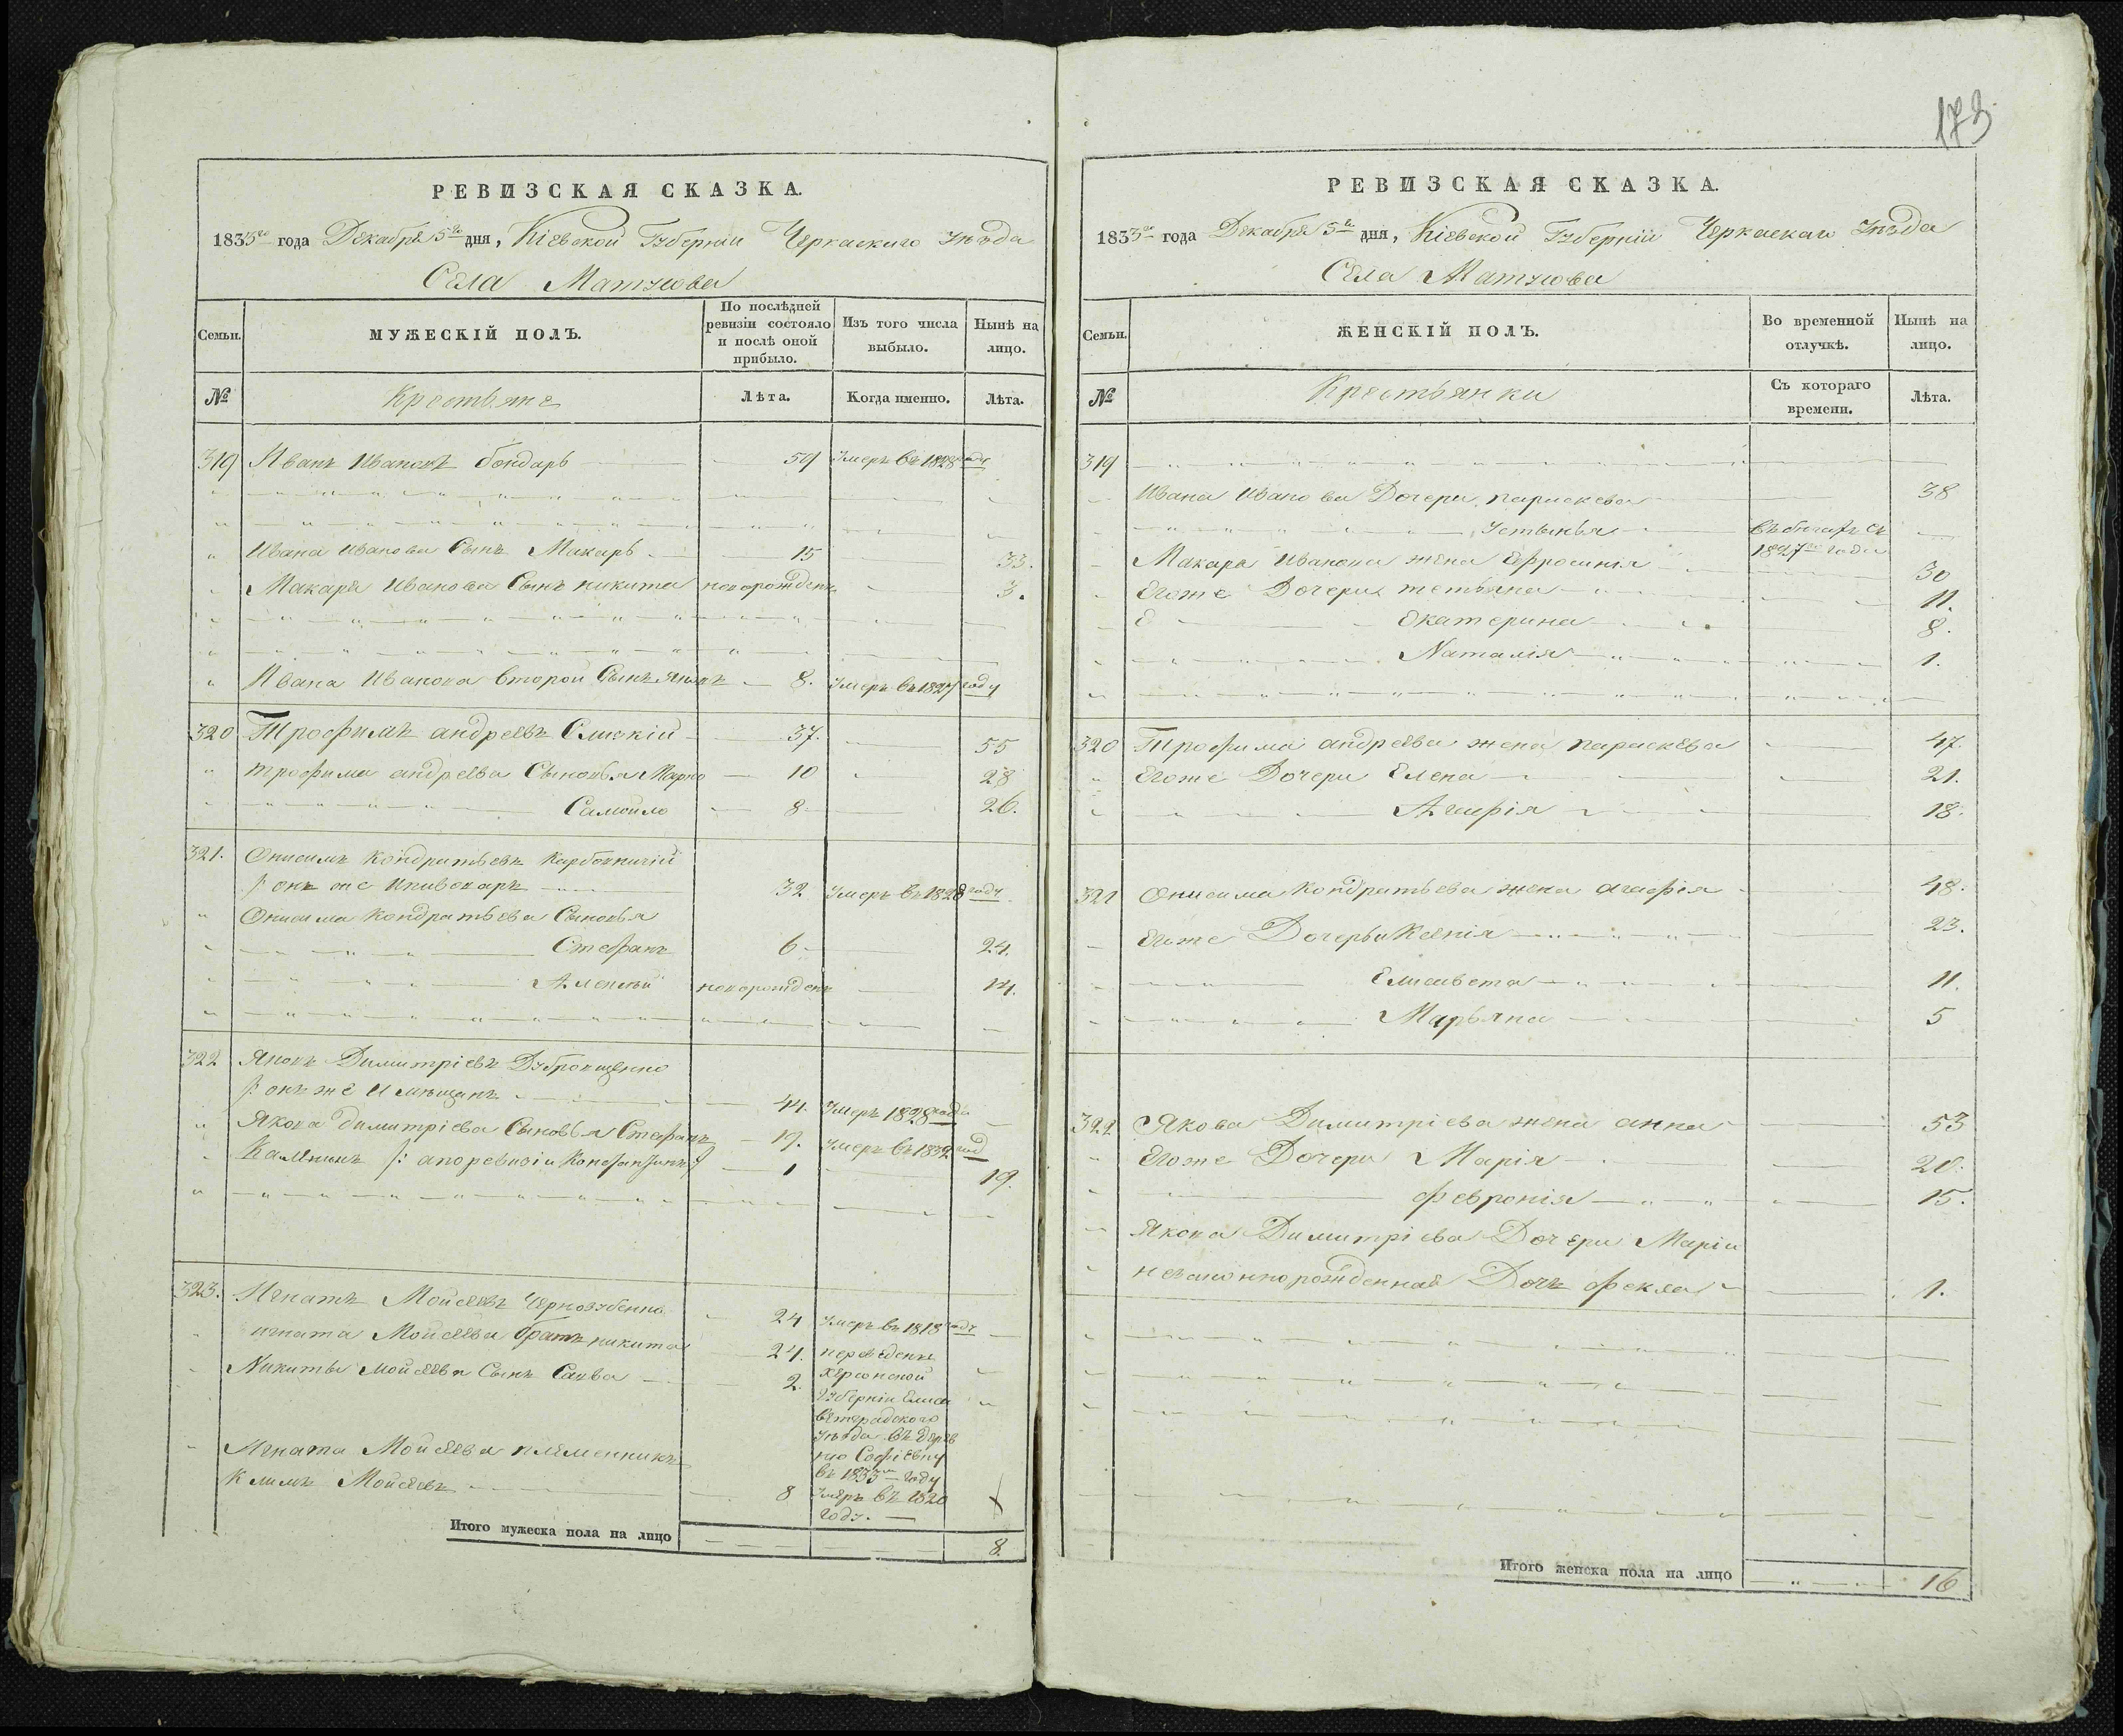 173
РЕВИЗСКАЯ СКАЗКА.
1833го года Декабря 5го дня, Кіевской Губерніи Черкаскаго Уезда
Села Матусова
Семьи. МУЖЕСКІЙ ПОЛЪ. По послѣдней ревизіи состояло и послѣ оной прибыло. Изъ того числа выбыло. Нынѣ на лицо.
№ Крестьяне Лѣта. Когда именно. Лѣта.
319 Иванъ Ивановъ бондарь 59 Умеръ въ 1828 году
Ивана Иванова Сынъ Макаръ 15 33.
Макара Иванова Сынъ никита новорожденъ 3.
Ивана Иванова второй Сынъ Яковъ 8. Умеръ въ 1827 году
320 Трофимъ андреевъ 37. 55
трофима андреева Сыновья Марко 10 28
Самойло 8 26.
321. Онисимъ Кондратьевъ
онъ же 32 Умеръ въ 1828 году
Онисима Кондратьева Сыновья
Стефанъ 6 24.
Алексѣй новорожденъ 14.
322 Яковъ Димитріевъ
онъ же 44. Умеръ 1828 года
Якова димитріева Сыновья Стефанъ 19. Умеръ въ 1832 год
/: апоревизіи 1 19.
323. Игнатъ Мойсеевъ 24 Умеръ въ 1818 году
игната Мойсеева братъ никита 24. переведены
Никиты Мойсеева Сынъ Савва 2. Херсонской
Губерніи Елиса
ветградского
Уезда въ дерев
ню Софіевку
въ 1833м году
Игната Мойсеева племенникъ
Климъ Мойсеевъ 8 Умеръ въ 1820
году.
Итого мужеска пола на лицо 8.
РЕВИЗСКАЯ СКАЗКА.
1833го года Декабря 5го дня, Кіевской Губерніи Черкаскаго Уезда
Села Матусова
Семьи. ЖЕНСКІЙ ПОЛЪ. Во временной отлучкѣ. Нынѣ на лицо.
№ Крестьянки Съ котораго времени. Лѣта.
319
Ивана Иванова Дочери параскева 38
Устинья въ бегахъ съ
1827го года
Макара Иванова жена Ефросинія 30
Егоже Дочери татьяна 11.
Екатерина 8.
Наталія 1.
320 Трофима андреева жена параскева 47.
Егоже Дочери Елена 21.
Агафія 18.
321 Онисима Кондратьева жена агафія 48.
Егоже Дочерьи Ксенія 23.
Елисавета 11.
Марьяна 5
322 Якова Димитріева жена анна 53
Егоже Дочери Марія 20.
февронія 15.
Якова Димитріева Дочери Маріи
незаконнорожденная Дочь фекла 1.
Итого женска пола на лицо 16